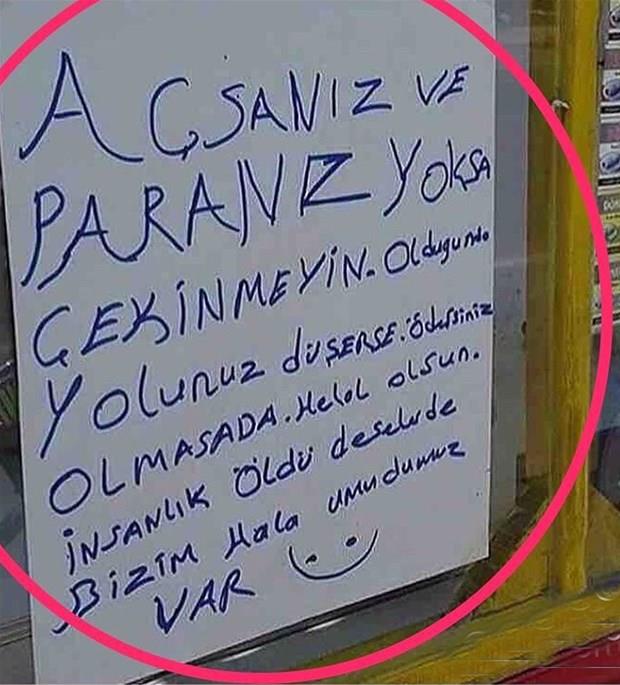 AÇSANIZ VE
PARANIZ YOKSA
ÇEKİNMEYİN. Olduğunda
Yolunuz düŞERSE. ödersiniz
OLMASADA. Helal olsun.
İNSANLIK ÖLDÜ deselerde
BİZİM Hala umudumuz
VAR